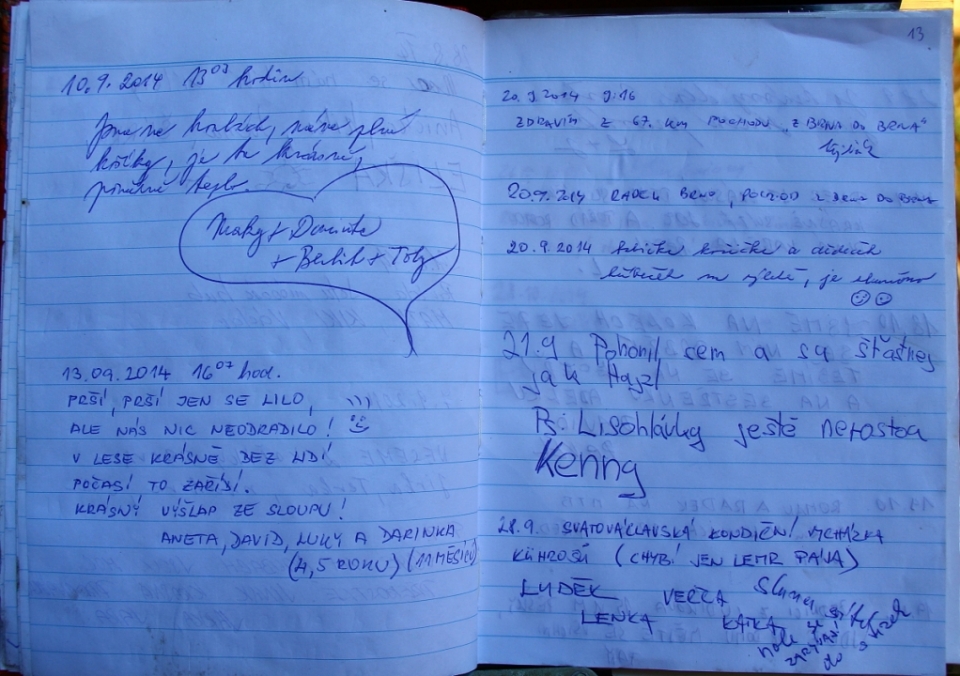 10.9.2014 13⁰³ hodin
Jsme na horkách, máme plné
košíky, je tu krásně,
teplo.
+ Darinka
+ Bertík + Toby
13.09.2014 16⁰⁷ hod.
PRŠÍ, PRŠÍ JEN SE LILO,
ALE NÁS NIC NEODRADILO!
V LESE KRÁSNĚ BEZ LIDÍ
POČASÍ TO ZAŘÍDÍ.
KRÁSNÝ VÝŠLAP ZE SLOUPU!
ANETA, DAVID, LUKY A DARINKA
(4,5 ROKU) (11 MĚSÍCŮ)
13
20.9.2014 9:16
ZDRAVÍM Z 67. KM POCHODU „Z BRNA DO BRNA"
20.9.2014 RADEK BRNO, POCHOD Z BRNA DO BRNA
20.9.2014 babička a dědeček
na výletě, je
21.9 Pohonil sem a su šťastnej
jak Hajzl
Ps: Lisohlávky ještě nerostou
Kenny
28.9. SVATOVÁCLAVSKÁ KONDIČNÍ VYCHÁZKA
KÜHROŠŮ (CHYBÍ JEN LEMR PÁVA)
LUDĚK VERČA
LENKA KATKA